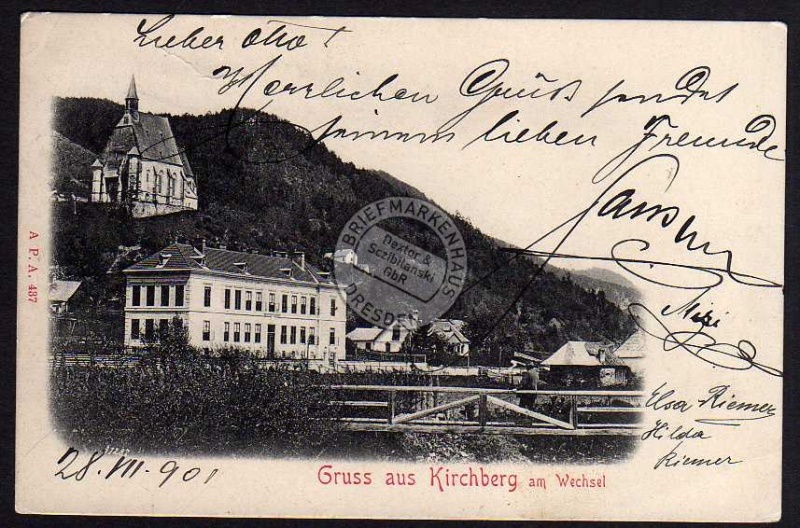 Lieber Otto!
Herzlichen Gruß sendet
seinem lieben Freunde
Mizi
Elsa Riemer
Hilda
Riemer
28. VII. 901
Gruss aus Kirchberg am Wechsel
A P. A. 487
BRIEFMARKENHAUS
Dextor &
Sczibilanski
GbR
DRESDEN